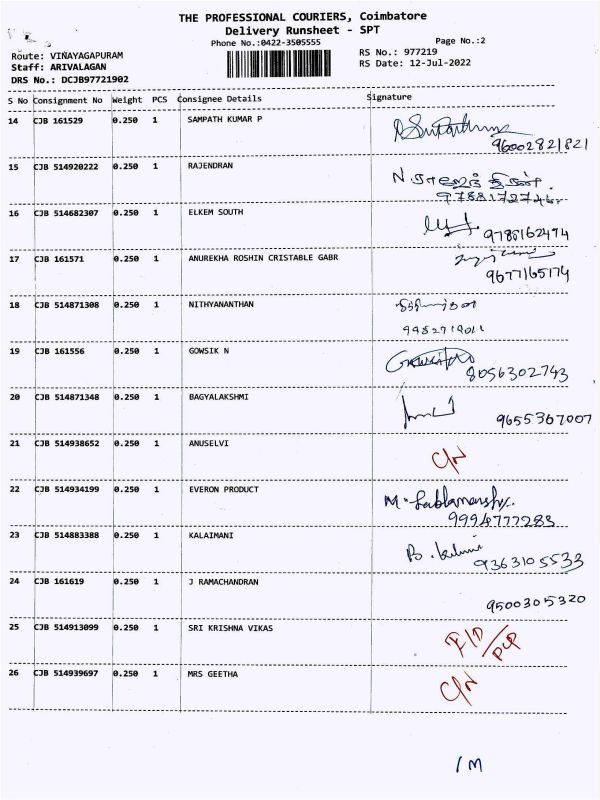 THE PROFESSIONAL COURIERS, Coimbatore
Delivery Runsheet - SPT
Phone No.:0422-3505555
Page No.:2
Route: VINAYAGAPURAM
RS No.: 977219
Staff: ARIVALAGAN
RS Date: 12-Jul-2022
DRS No.: DCJB97721902
S No Consignment No Weight PCS Consignee Details Signature
14 CJB 161529 0.250 1 SAMPATH KUMAR P
96002821821
15 CJB 514920222 0.250 1 RAJENDRAN
16 CJB 514682307 0.250 1 ELKEM SOUTH
9789162474
17 CJB 161571 0.250 1 ANUREKHA ROSHIN CRISTABLE GABR
9677165174
18 CJB 514871308 0.250 1 NITHYANANTHAN
19 CJB 161556 0.250 1 GOWSIK N
8056302743
20 CJB 514871348 0.250 1 BAGYALAKSHMI
9655367007
21 CJB 514938652 0.250 1 ANUSELVI
C/N
22 CJB 514934199 0.250 1 EVERON PRODUCT
9994777283
23 CJB 514883388 0.250 1 KALAIMANI
9363105533
24 CJB 161619 0.250 1 J RAMACHANDRAN
9500305320
25 CJB 514913099 0.250 1 SRI KRISHNA VIKAS
26 CJB 514939697 0.250 1 MRS GEETHA
C/N
1M